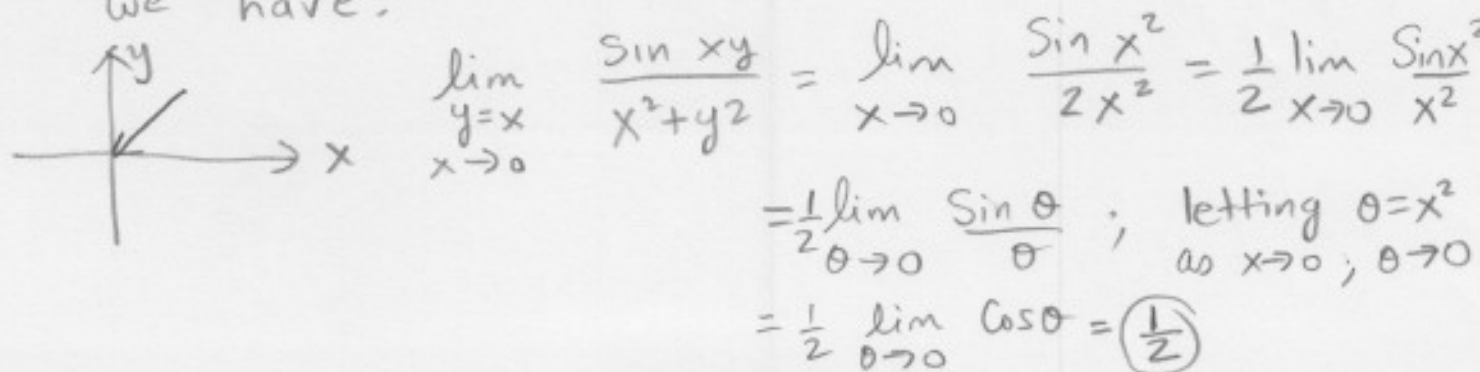 we have.
y
x
lim y=x x→0 sin xy / x²+y2 = lim x→0 Sin x² / 2x² = 1/2 lim x→0 Sinx² / x²
= 1/2 lim θ→0 Sin θ / θ ; letting θ=x²
as x→0 ; θ→0
= 1/2 lim θ→0 Cosθ = 1/2